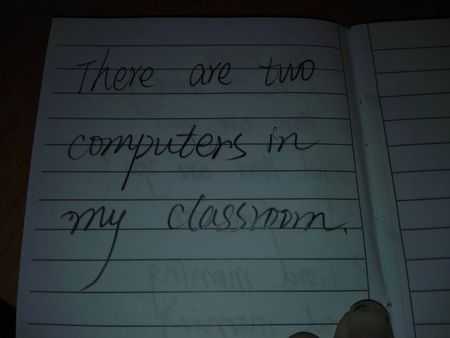 There are two
computers in
my classroom.